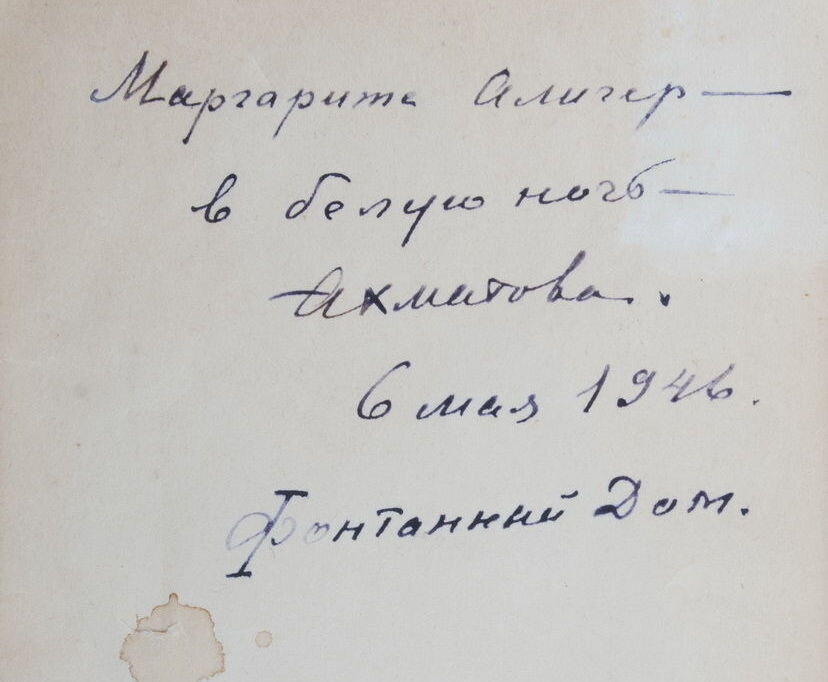 Маргарите Алигер —
в белую ночь —
Ахматова.
6 мая 1946.
Фонтанный Дом.